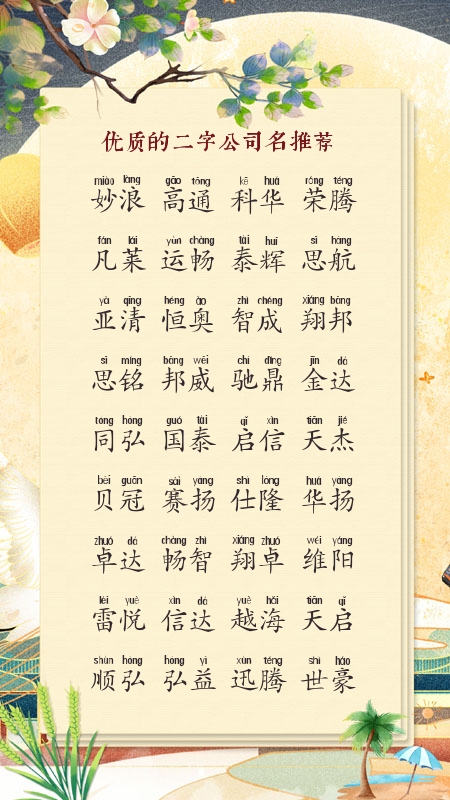 优质的二字公司名推荐
miào làng gāo tōng kē huá róng téng
妙浪 高通 科华 荣腾
fán lái yùn chàng tài huī sī háng
凡莱 运畅 泰辉 思航
yà qīng héng ào zhì chéng xiáng bāng
亚清 恒奥 智成 翔邦
sī míng bāng wēi chí dǐng jīn dá
思铭 邦威 驰鼎 金达
tóng hóng guó tài qǐ xìn tiān jié
同弘 国泰 启信 天杰
bèi guān sài yáng shì lóng huá yáng
贝冠 赛扬 仕隆 华扬
zhuó dá chàng zhì xiáng zhuó wéi yáng
卓达 畅智 翔卓 维阳
léi yuè xìn dá yuè hǎi tiān qǐ
雷悦 信达 越海 天启
shùn hóng hóng yì xùn téng shì háo
顺弘 弘益 迅腾 世豪